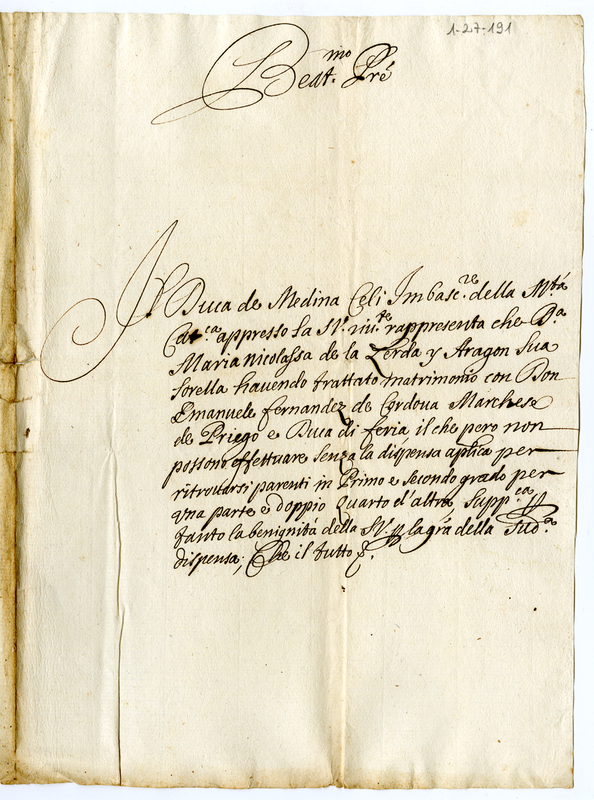 1-27-191
Beat.mo Pre
Il Duca de Medina Celi Imbasc.re della M.tà
Cat.ca appresso la S.V. riu.te rappresenta che D.a
Maria Nicolassa de la Zerda y Aragon Sua
sorella havendo trattato matrimonio con Don
Emanuele fernandez de Cordova Marchese
de Priego e Duca di feria, il che pero non
possono effettuare senza la dispensa aplica per
ritrovarsi parenti in Primo e secondo grado per
una parte e doppio Quarto d'altra, Supp.ca p
tanto la benignità della S.V. p la gra della Sud.a
dispensa; Che il tutto